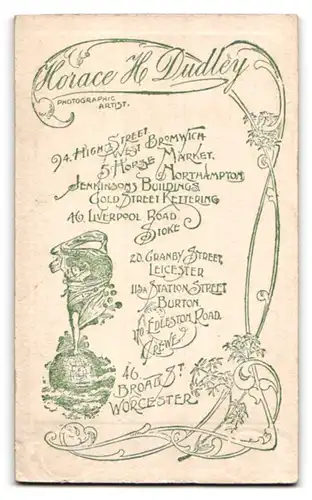 Horace H Dudley
PHOTOGRAPHIC
ARTIST.
94. HIGH STREET
WEST BROMWICH
5. HORSE MARKET.
NORTHAMPTON
JENKINSONS BUILDINGS
GOLD STREET KETTERING
46. LIVERPOOL ROAD
STOKE
20. GRANBY STREET
LEICESTER
113A STATION STREET
BURTON.
EDLESTON ROAD.
CREWE
46
BROAD ST
WORCESTER